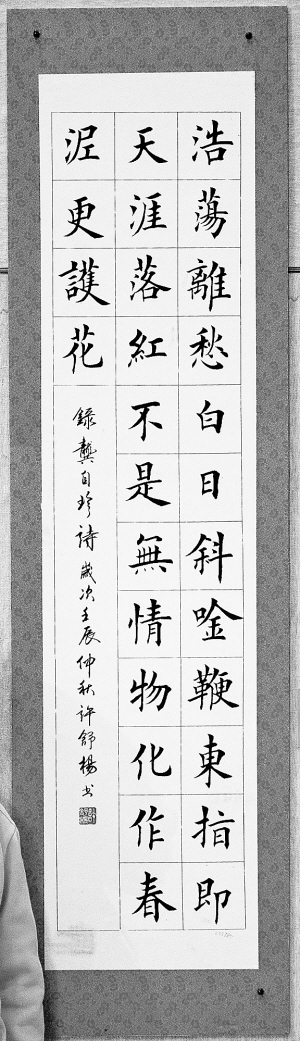 浩蕩離愁白日斜唫鞭東指即
天涯落紅不是無情物化作春
泥更護花
錄龔自珍詩歲次壬辰仲秋許舒楊书